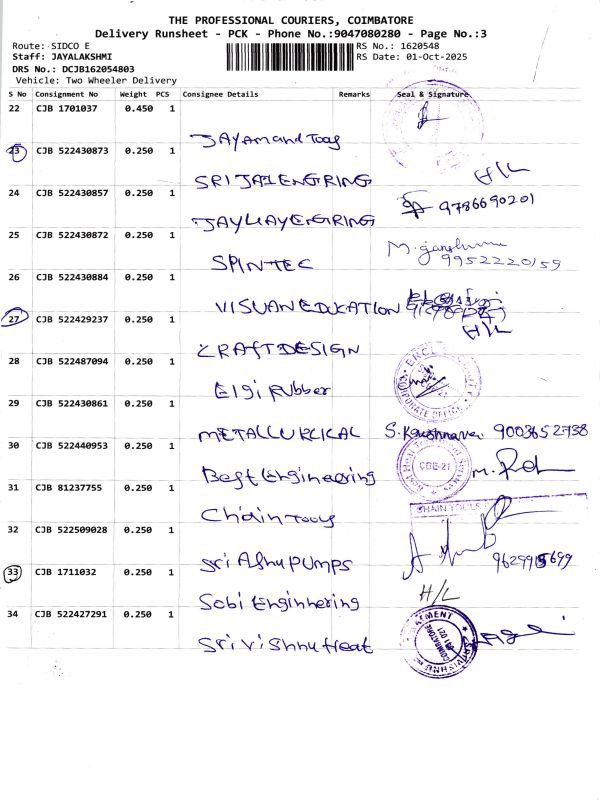 THE PROFESSIONAL COURIERS, COIMBATORE
Delivery Runsheet - PCK - Phone No.:9047080280 - Page No.:3
Route: SIDCO E
RS No.: 1620548
Staff: JAYALAKSHMI
RS Date: 01-Oct-2025
DRS No.: DCJB162054803
Vehicle: Two Wheeler Delivery
S No Consignment No Weight PCS Consignee Details Remarks Seal & Signature
22 CJB 1701037 0.450 1
JAYAmand Tools
23 CJB 522430873 0.250 1
SRI JAI ENGRING H/L
24 CJB 522430857 0.250 1
9786690201
JAYUAY ENGRING
25 CJB 522430872 0.250 1
SPINTEC
9952220159
26 CJB 522430884 0.250 1
VISUAN EDUCATION
27 CJB 522429237 0.250 1
H/L
CRAFT DESIGN
28 CJB 522487094 0.250 1
Elgi Rubber
CORPORATE OFFICE
29 CJB 522430861 0.250 1
METALLURLICAL S. 9003652738
30 CJB 522440953 0.250 1
CBE-21
Best Engineering
31 CJB 81237755 0.250 1
CHAIN TOOLS
Chain Tools
32 CJB 522509028 0.250 1
Sri Ashu PUMPS
33 CJB 1711032 0.250 1
H/L
Sobi Enginhering
34 CJB 522427291 0.250 1
Sri Vishnu Heat
COIMBATORE
641 021